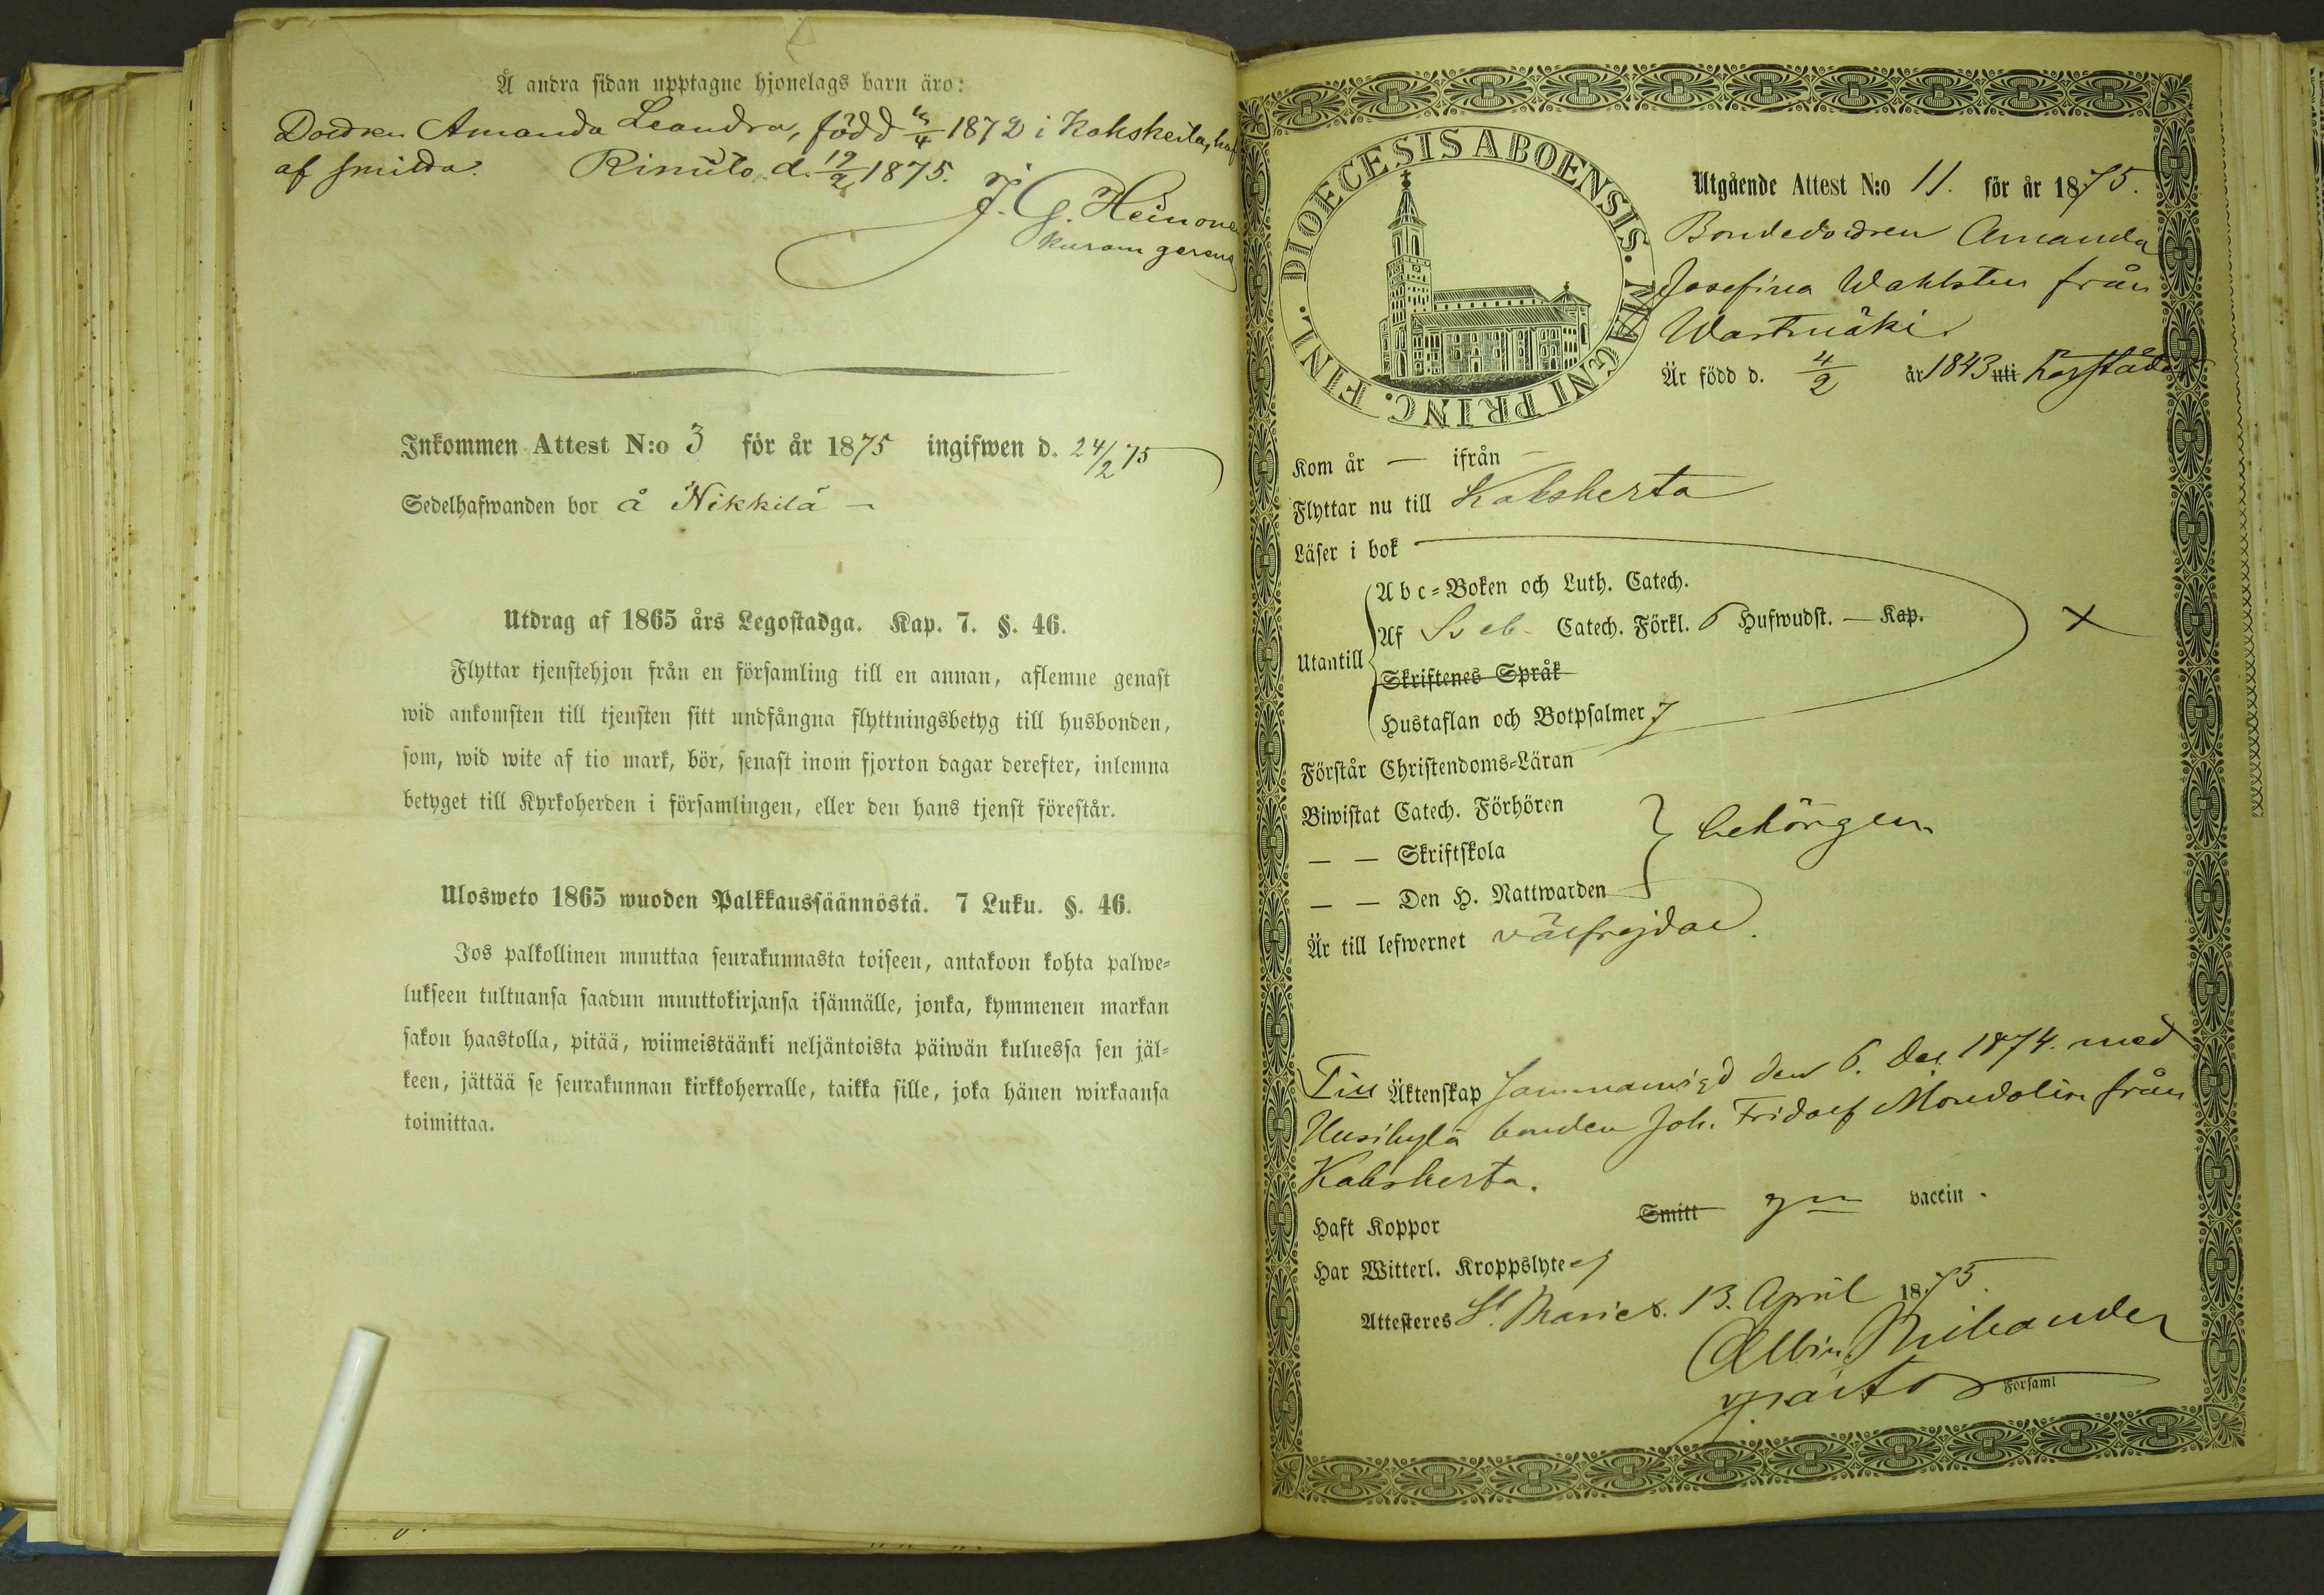 Å andra sidan upptagne hjonelags barn äro:
Dodren Amanda Leandra, född 1872 i Kakskerta, haf
af smitta. Rimito d. 19/2 1875.
J. G. Heinone
kuram gerens
Inkommen Attest N:o 3 för år 1875 ingifwen d. 24/2 75
Sedelhafwanden bor å Nikkilä –
Utdrag af 1865 års Legostadga. Kap. 7. §. 46.
Flyttar tjenstehjon från en församling till en annan, aflemne genast
wid ankomsten till tjensten sitt undfångna flyttningsbetyg till husbonden,
som, wid wite af tio mark, bör, senast inom fjorton dagar derefter, inlemna
betyget till Kyrkoherden i församlingen, eller den hans tjenst förestår.
Ulosweto 1865 wuoden Palkkaussäännöstä. 7 Luku. §. 46.
Jos palkollinen muuttaa seurakunnasta toiseen, antakoon kohta palwe-
lukseen tultuansa saadun muuttokirjansa isännälle, jonka, kymmenen markan
sakon haastolla, pitää, wiimeistäänki neljäntoista päiwän kuluessa sen jäl-
keen, jättää se seurakunnan kirkkoherralle, taikka sille, joka hänen wirkaansa
toimittaa.
DIOECESIS ABOENSIS. MAGNI PRINC. FINL.
Utgående Attest N:o 11. för år 1875.
Bondedodren Amanda
Josefina Wahlsten från
Wartmäki
Är född d. 4/2 år 1843 uti
Kom år — ifrån —
Flyttar nu till Kakskerta
Läser i bok
Abc-Boken och Luth. Catech.
Af Sveb. Catech. Förkl. 6 Hufwudst. — Kap.
Utantill
Skriftenes Språk
Hustaflan och Botpsalmer 7
×
Förstår Christendoms-Läran
Biwistat Catech. Förhören
— — Skriftskola
behörigen
— — Den H. Nattwarden
Är till lefwernet välfrejdad.
Till Äktenskap sammanvigd den 6. Dec. 1874 med
Uusikylä bonden Joh. Fridolf Mondolin från
Kakskerta.
Haft Koppor Smitt gm vaccin.
Har Witterl. Kroppslyte ej
Attesteres St. Marie d. 13. April 1875
Albin
v. pastor Församl